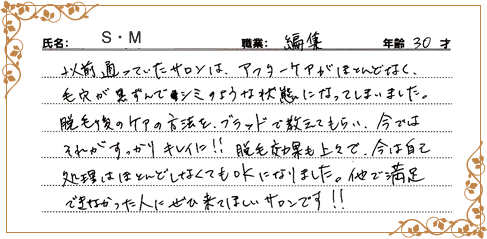 氏名: S・M 職業: 編集 年齢 30 才
以前通っていたサロンは、アフターケアがほとんどなく、
毛穴が黒ずんでシミのような状態になってしまいました。
脱毛後のケアの方法を、ブラッドで教えてもらい、今では
それがすっかりキレイに!! 脱毛効果も上々で、今は自己
処理はほとんどしなくてもOKになりました。他で満足
できなかった人にぜひ来てほしいサロンです!!